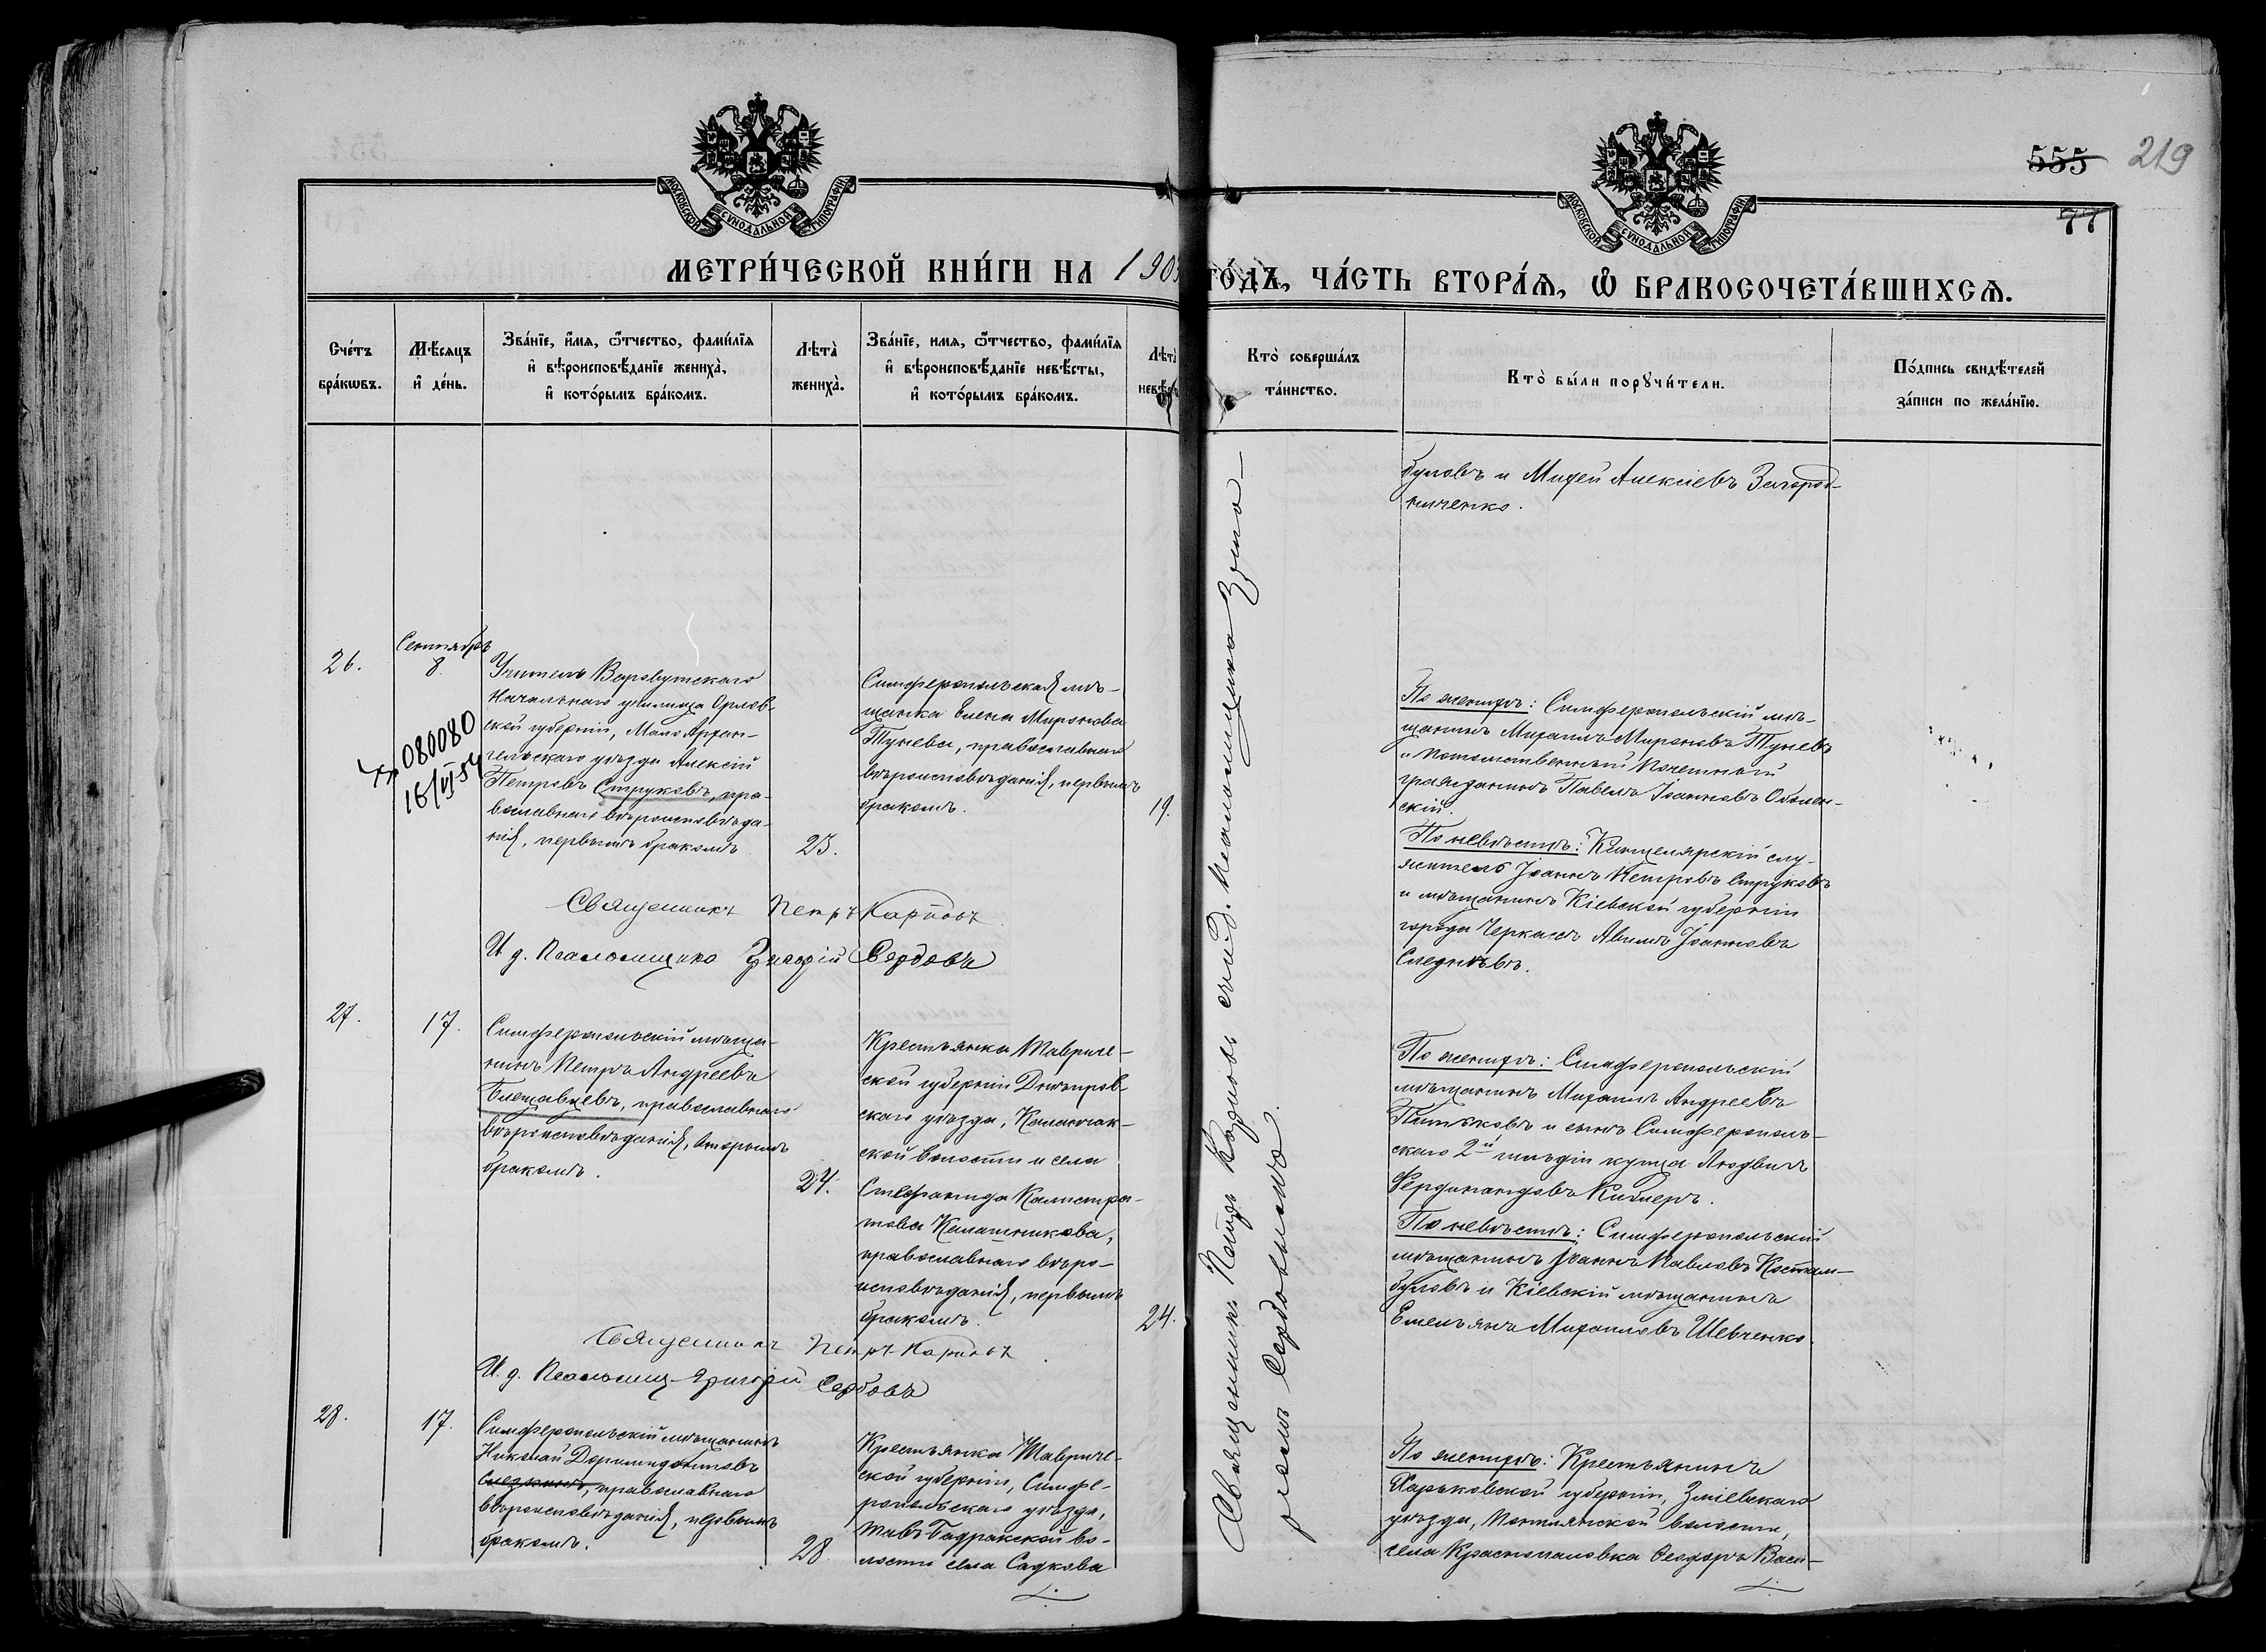 555 219
77
МОСКОВСКОЙ СѴНОДАЛЬНОЙ ТИПОГРАФІИ
МОСКОВСКОЙ СѴНОДАЛЬНОЙ ТИПОГРАФІИ
МЕТРИ́ЧЕСКОЙ КНИ́ГИ НА 190
ГО́ДЪ, ЧА́СТЬ ВТОРА́Ѧ, Ѡ БРАКОСОЧЕТА́ВШИХСѦ.
Сче́тъ бра́кѡвъ.
Мѣ́сяцъ и де́нь.
Зва́нїе, и́мѧ, ѻ҆́тчество, фами́лїѧ
и вѣроисповѣ́данїе жениха̀,
и кото́рымъ бра́комъ.
Лѣта̀ жениха̀.
Зва́нїе, имѧ, ѻ҆́тчество, фами́лїѧ
и вѣроисповѣ́данїе невѣ́сты,
и кото́рымъ бра́комъ.
Лѣта̀
Кто̀ соверша́лъ
та́инство.
Кто̀ бы́ли порꙋчи́тели.
По́дпись свидѣ́телей
за́писи по жела́нїю.
буловъ и Миѳей Алексіевъ Загород-
ниченко.
26.
Сентябрь
8.
080080
16/VI 54
Учитель
Начальнаго училища Орлов-
ской губерніи, Мало Архан-
гельскаго уѣзда Алексій
Петровъ Струковъ, пра-
вославнаго вѣроисповѣда-
нія, первымъ бракомъ
23.
Симферопольская мѣ-
щанка Елена Миронова
Тунева, православнаго
вѣроисповѣданія, первымъ
бракомъ.
19.
По женихѣ: Симферопольскій мѣ-
щанинъ Михаилъ Мироновъ Туневъ
и потомственный почетный
гражданинъ Павелъ Іоанновъ Оболен-
скій.
По невѣстѣ: Канцелярскій слу-
житель Іоаннъ Петровъ Струковъ
и мѣщанинъ Кіевской губерніи
города Черкасъ Іоанновъ
Священникъ Петръ Карповъ
И. д. Псаломщика Григорій Сербовъ
27.
17.
Симферопольскій мѣща-
нинъ Петръ Андреевъ
Блещавцевъ, православнаго
вѣроисповѣданія, вторымъ
бракомъ.
24.
Крестьянка Тавриче-
ской губерніи Днѣпров-
скаго уѣзда, Каланчак-
ской волости и села
Стефанида Калистра-
това Калашникова,
православнаго вѣро-
исповѣданія, первымъ
бракомъ.
24.
По женихѣ: Симферопольскій
мѣщанинъ Михаилъ Андреевъ
и сынъ Симферополь-
скаго 2й гильдіи купца Людвигъ
Фердинандовъ Киблеръ.
По невѣстѣ: Симферопольскій
мѣщанинъ Іоаннъ Павловъ Костам-
буловъ и Кіевскій мѣщанинъ
Емельянъ Михаиловъ Шевченко.
Священникъ Петръ Карповъ
И. д. Псаломщ. Григорій Сербовъ
28.
17.
Симферопольскій мѣщанинъ
Николай Доримидонтовъ
православнаго
вѣроисповѣданія, первымъ
бракомъ.
28.
Крестьянка Тавриче-
ской губерніи, Симфе-
ропольскаго уѣзда,
Тавъ Бадракской во-
лости села Садкова
По женихѣ: Крестьянинъ
Харьковской губерніи, Зміевскаго
уѣзда, волости,
села Краснопавловка Ѳеодоръ Васи-
Священникъ Петръ Карповъ съ и. д. псаломщика Григо-
ріемъ Сербовымъ.